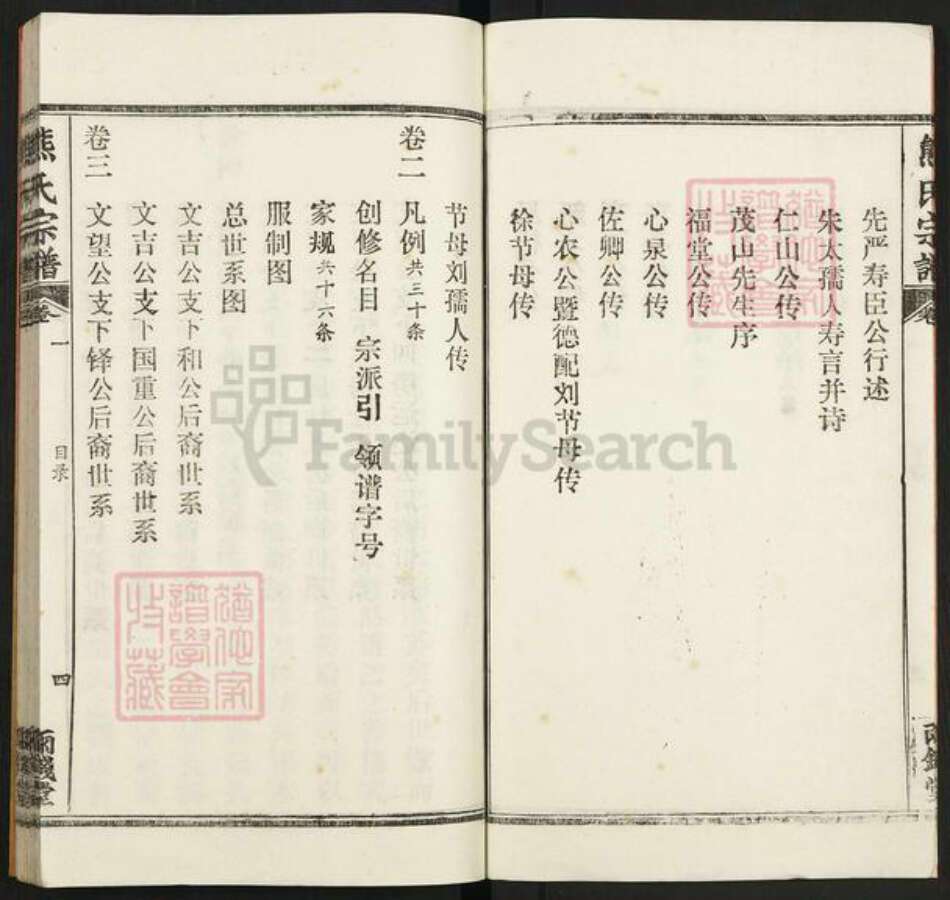 先严寿臣公行述
朱太孺人寿言并诗
仁山公传
茂山先生序
福堂公传
心泉公传
佐卿公传
心农公暨德配刘节母传
徐节母传
节母刘孺人传
卷二
凡例共三十条
创修名目 宗派引 领谱字号
家规共十六条
服制图
总世系图
文吉公支下和公后裔世系
文吉公支下国重公后裔世系
卷三
文望公支下铎公后裔世系
熊氏宗谱
卷一
目录
四
雨钱堂
熊氏宗谱
卷
雨钱堂
FamilySearch